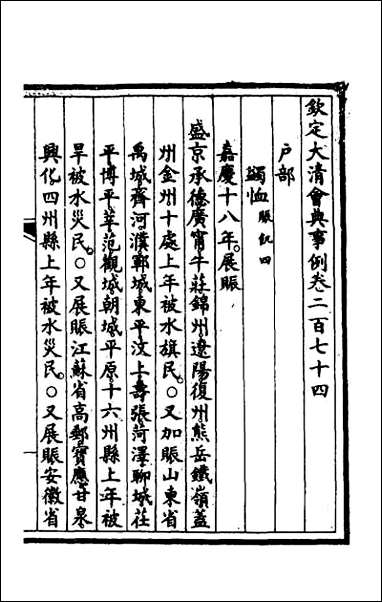 欽定大清會典事例卷二百七十四
戶部
蠲恤賑饑四
嘉慶十八年。展賑
盛京承德廣甯牛莊錦州遼陽復州熊岳鐵嶺蓋
州金州十處上年被水旗民。○又加賑山東省
禹城齊河濮鄆城東平汶上壽張菏澤聊城茌
平博平莘范觀城朝城平原十六州縣上年被
旱被水災民。○又展賑江蘇省高郵寶應甘泉
興化四州縣上年被水災民。○又展賑安徽省